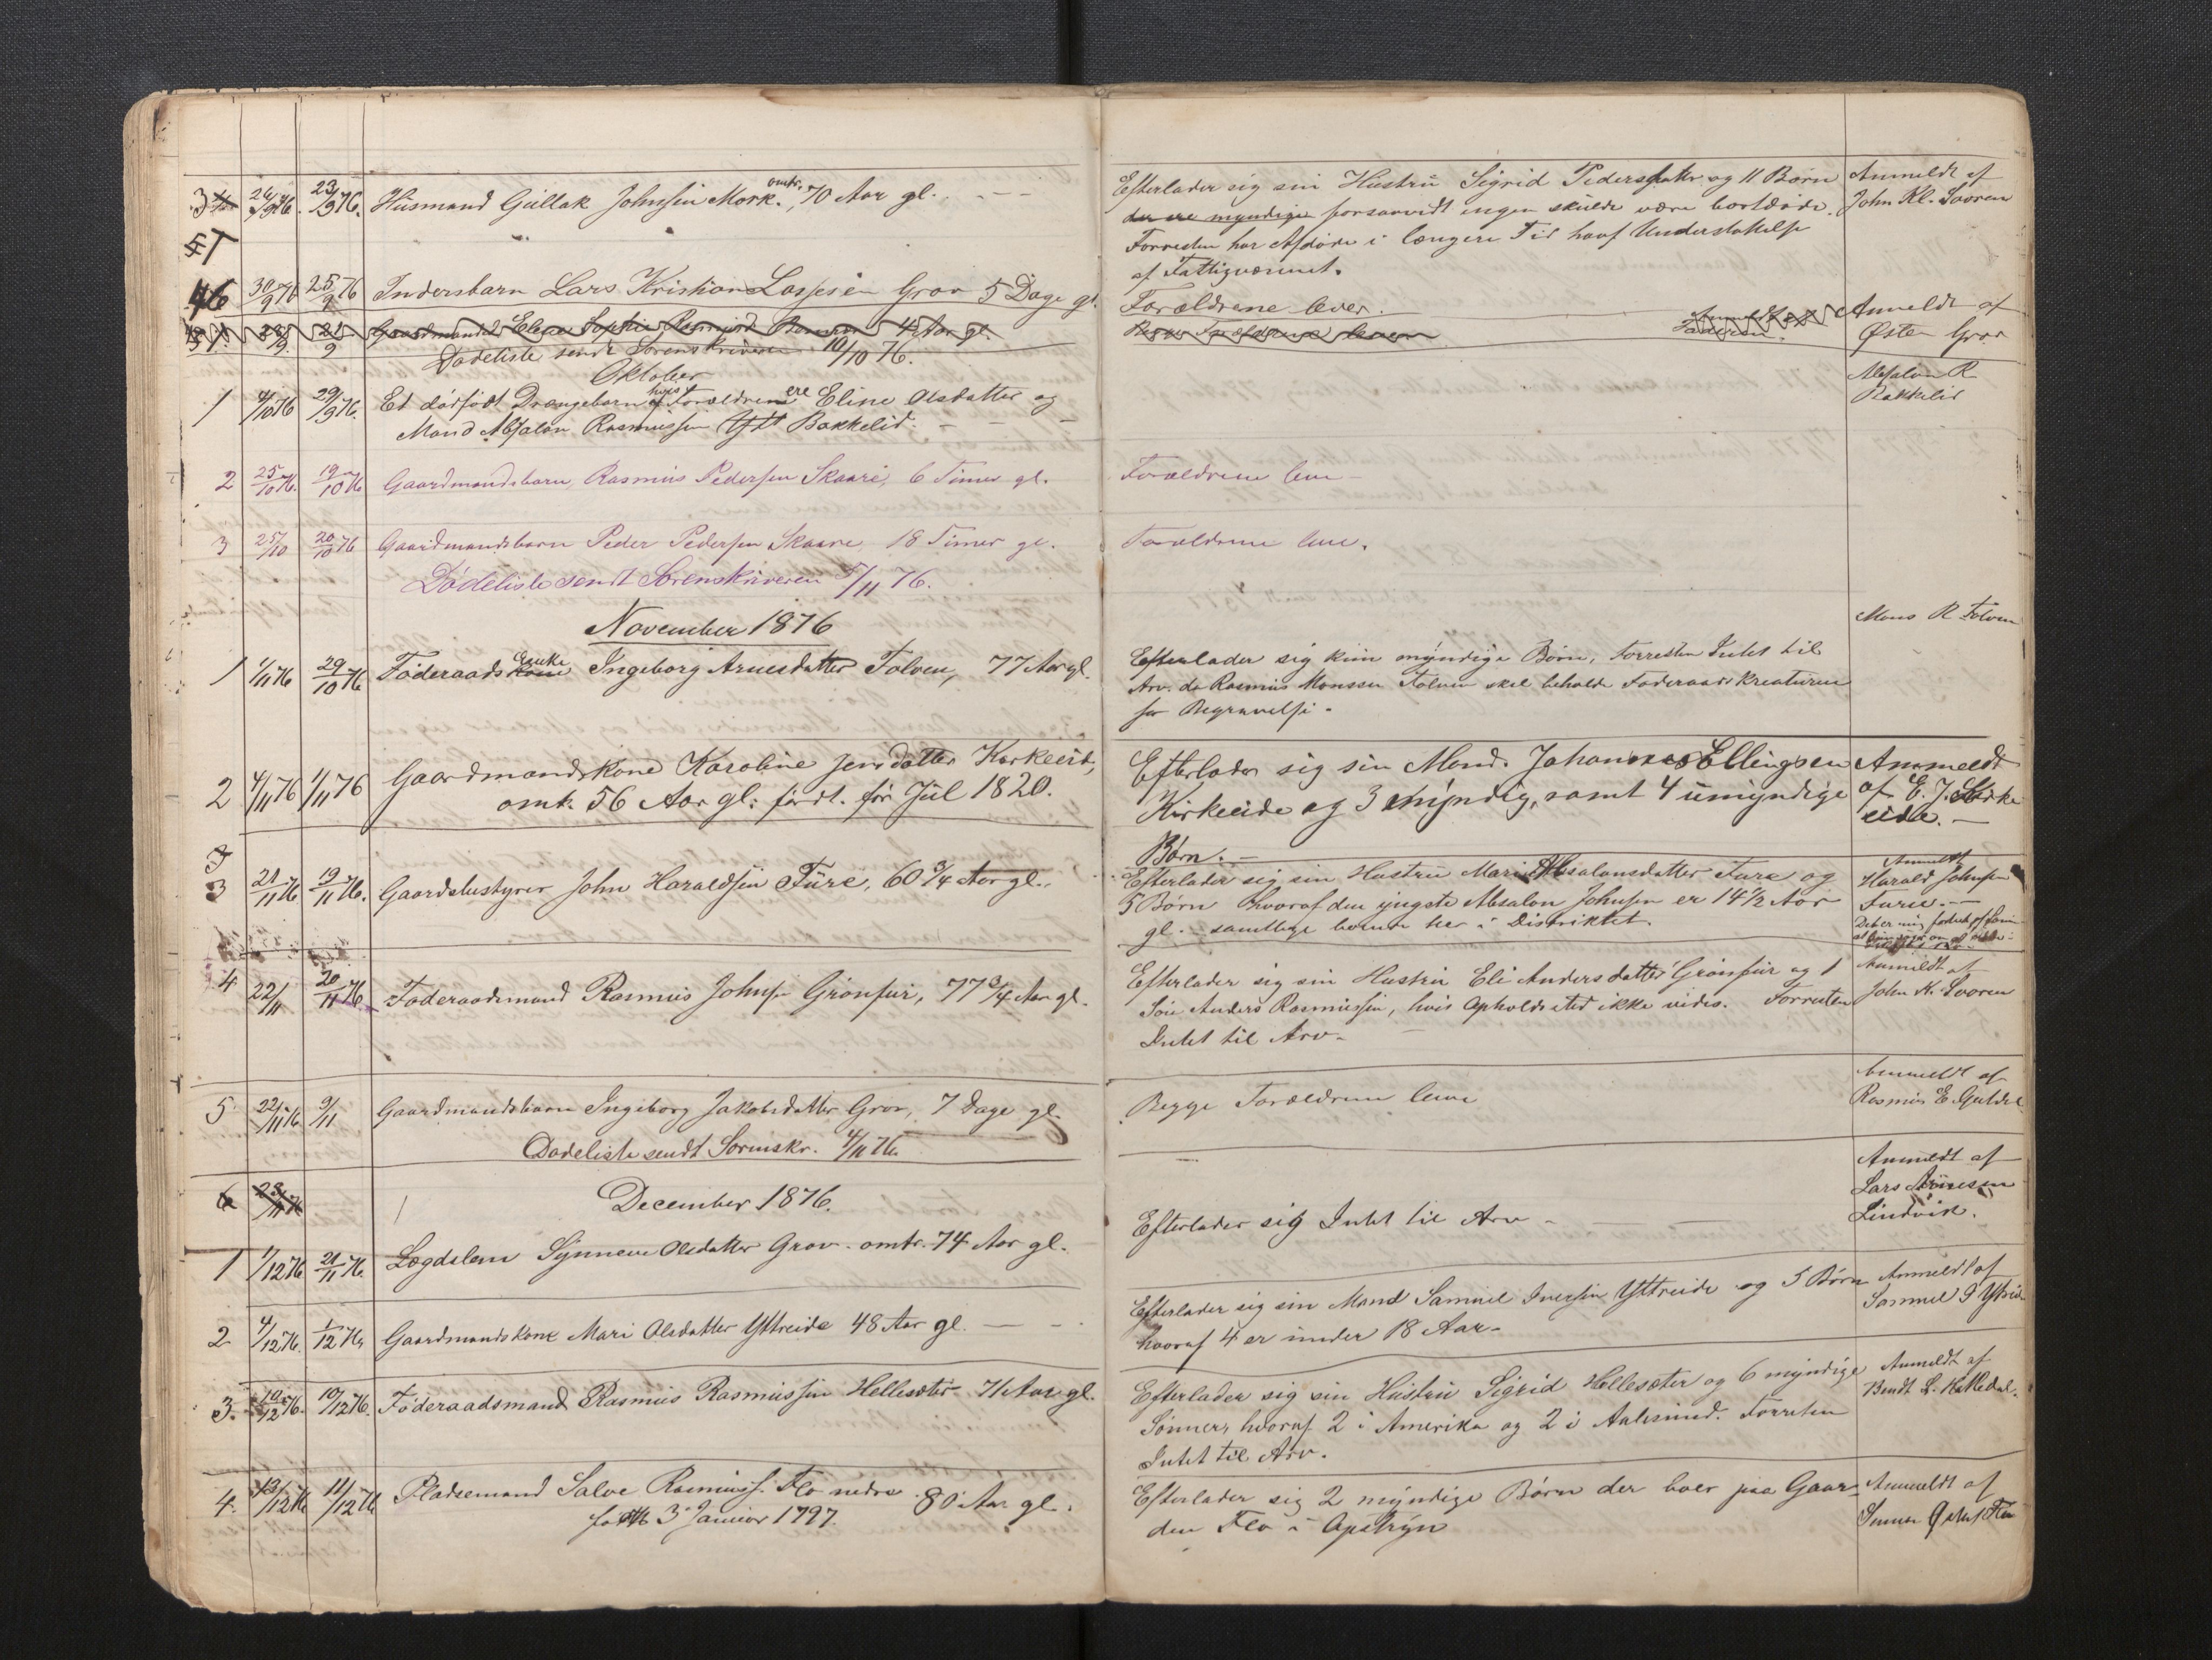 3 26/9 76. 23/9 76. Husmand Gullak Johnsen Mork. omtr. 70 Aar gl.
Efterlader sig sin Hustru Sigrid Pedersdatter og 11 Børn
der ere myndige forsaavidt ingen skulde være bortdøde.
Forresten har Afdøde i længere Tid havt Understøttelse
af Fattigvæsenet.
Anmeldt af
John Kl. Svoren
46 30/9 76 25/9 76 Indersbarn Lars Kristian Lassesen Grov 5 Dage gl.
Forældrene lever.
Anmeldt af
Østen Grov
Gaardmandsb Elen Sophie 4 Aar gl.
Dødeliste sendt Sorenskriveren 10/10 76.
Oktober
1 4/10 76 29/9 76. Et dødfødt Drengebarn hvis Forældrene ere Eline Olsdatter og
Mand Absalon Rasmussen Bakkelid.
Absalon R
Bakkelid
2 25/10 76. 19/10 76 Gaardmandsbarn Rasmus Pedersen Skaare, 6 Timer gl.
Forældrene leve
3 25/10 20/10 76 Gaardmandsbarn Peder Pedersen Skaare 18 Timer gl.
Forældrene leve.
Dødeliste sendt Sorenskriveren 5/11 76.
November 1876
1 1/11 76 29/10 76 Føderaads kone Enke Ingeborg Arnesdatter Tolven, 77 Aar gl.
Efterlader sig kun myndige Børn, forresten Intet til
Arv. da Rasmus Monssen Folven skal beholde Føderaadskreaturene
for Begravelse.
Mons R Folven
2 4/11 76 1/11 76 Gaardmandskone Karoline Jensdatter Kirkeeide,
omtr. 56 Aar gl. født. før Jul 1820.
Efterlader sig sin Mand. Johannes Ellingsen
Kirkeeide og 3 myndig, samt 4 umyndige
Børn.
Anmeldt
af E. J. Kirke
eide.
3 21/11 76 19/11 76. Gaardsbestyrer John Haraldsen Fure, 60 3/4 Aar gl.
Efterlader sig sin Hustru Mari Absalonsdatter Fure og
5 Børn hvoraf den yngste Absalon Johnsen er 14 1/2 Aar
gl. samtlige boende her i Distriktet.
Anmeldt
Harald Johnsen
Fure.
4 22/11 20/11 76 Føderaadsmand Rasmus Johnsen Grønfur, 77 3/4 Aar gl.
Efterlader sig sin Hustru Eli Andersdatter Grønfur og 1
Søn Anders Rasmussen, hvis Opholdssted ikke vides. Forresten
Intet til Arv.
Anmeldt af
John K. Svoren
5 22/11 76 9/11 Gaardmandsbarn Ingeborg Jakobsdatter Grov, 7 Dage gl.
Begge Forældrene leve
Anmeldt af
Rasmus E. Guldal
Dødeliste sendt Sorenskr. 4/11 76.
6 23/11 76
December 1876.
1 1/12 76 21/11 76. Lægdslem Synneve Olsdatter Grov. omtr. 74 Aar gl.
Efterlader sig Intet til Arv
Anmeldt af
Lars Arnesen
Lindvik.
2 4/12 76. 1/12 76 Gaardmandskone Mari Olsdatter Yttreide 48 Aar gl.
Efterlader sig sin Mand Samuel Iversen Yttreide og 5 Børn
hvoraf 4 er under 18 Aar.
Anmeldt af
Samuel I Ytreide
3. 10/12 76. 10/12 76. Føderaadsmand Rasmus Rasmussen Hellesæter 71 Aar gl.
Efterlader sig sin Hustru Sigrid Hellesæter og 6 myndige
Sønner, hvoraf 2 i Amerika og 2 i Aalesund. Forresten
Intet til Arv.
Anmeldt af
Bendt L.
4. 13/12 76 11/12 76 Pladsemand Salve Rasmuss. Flo nedre 80 Aar gl.
født 3 Januar 1797.
Efterlader sig 2 myndige Børn der boer paa Gaar-
den Flo i Opstryn
Anmeldt af